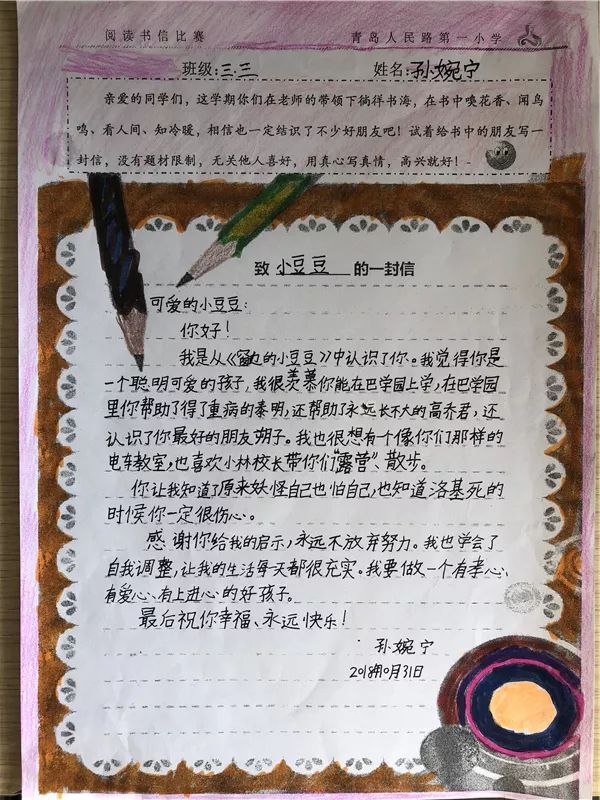 阅读书信比赛 青岛人民路第一小学
班级:三.三 姓名:孙婉宁
亲爱的同学们，这学期你们在老师的带领下徜徉书海，在书中嗅花香、闻鸟
鸣、看人间、知冷暖，相信也一定结识了不少好朋友吧！试着给书中的朋友写一
封信，没有题材限制，无关他人喜好，用真心写真情，高兴就好！
致 小豆豆 的一封信
可爱的小豆豆：
你好！
我是从《窗边的小豆豆》中认识了你。我觉得你是
一个聪明可爱的孩子，我很羡慕你能在巴学园上学，在巴学园
里你帮助了得了重病的泰明，还帮助了永远长不大的高乔君，还
认识了你最好的朋友朔子。我也很想有个像你们那样的
电车教室，也喜欢小林校长带你们“露营”、散步。
你让我知道了原来妖怪自己也怕自己，也知道洛基死的
时候你一定很伤心。
感谢你给我的启示，永远不放弃努力。我也学会了
自我调整，让我的生活每天都很充实。我要做一个有孝心、
有爱心、有上进心的好孩子。
最后祝你幸福、永远快乐！
孙婉宁
2018年10月31日